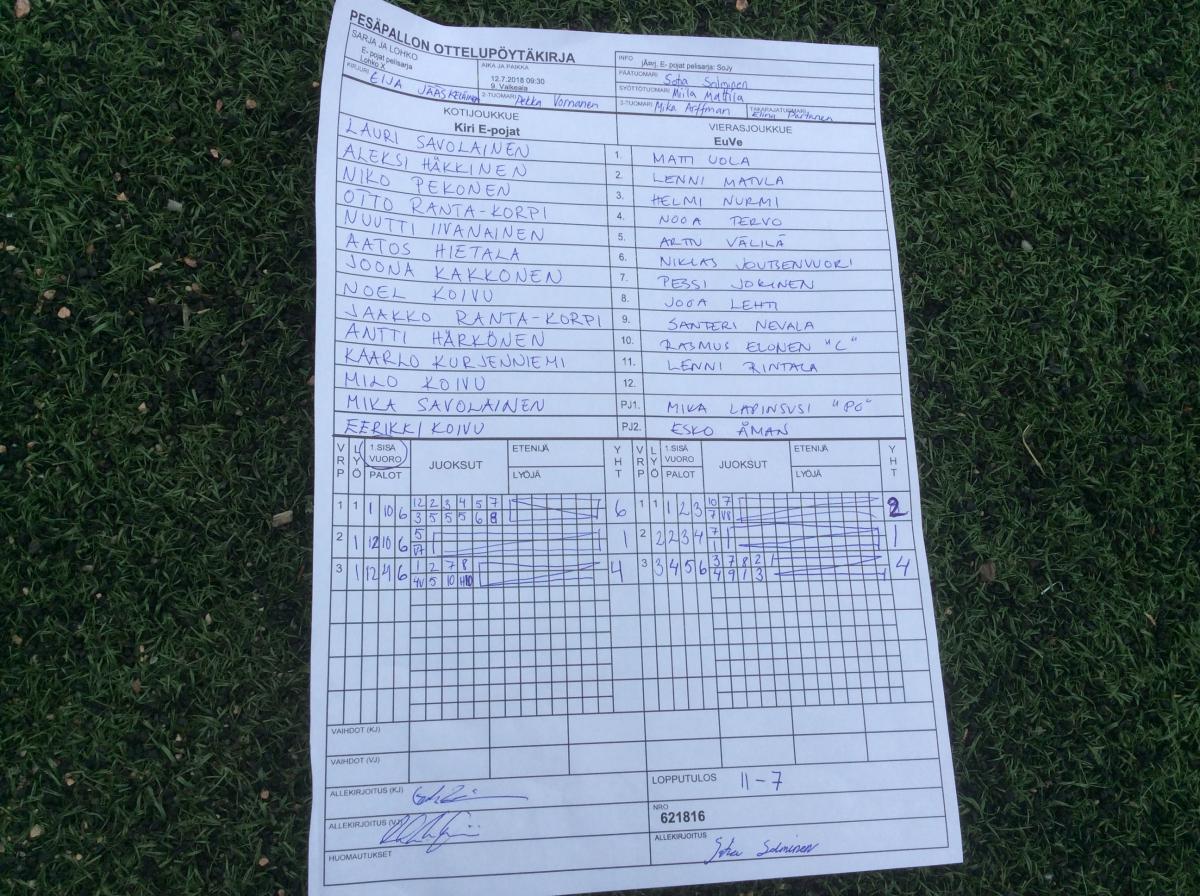 PESÄPALLON OTTELUPÖYTÄKIRJA
SARJA JA LOHKO
E- pojat pelisarja
Lohko X
AIKA JA PAIKKA
12.7.2018 09:30
9. Valkeala
INFO jÄsrj. E- pojat pelisarja: SoJy
PÄÄTUOMARI Sofia Solminen
SYÖTTÖTUOMARI Miila Mattila
KIRJURI EIJA JÄÄSKELÄINEN
2-TUOMARI Pekka Vornanen
3-TUOMARI Mika Arffman
TAKARAJATUOMARI Elina Partanen
KOTIJOUKKUE
Kiri E-pojat
VIERASJOUKKUE
EuVe
LAURI SAVOLAINEN 1. MATTI UOLA
ALEKSI HÄKKINEN 2. LENNI MATULA
NIKO PEKONEN 3. HELMI NURMI
OTTO RANTA-KORPI 4. NOOA TERVO
NUUTTI IIVANAINEN 5. ARTTU VÄLILÄ
AATOS HIETALA 6. NIKLAS JOUTSENVUORI
JOONA KAKKONEN 7. PESSI JOKINEN
NOEL KOIVU 8. JOOA LEHTI
JAAKKO RANTA-KORPI 9. SANTERI NEVALA
ANTTI HÄRKÖNEN 10. RASMUS ELONEN "C"
KAARLO KURJENNIEMI 11. LENNI RINTALA
MILO KOIVU 12.
MIKA SAVOLAINEN PJ1. MIKA LAPINSUSI "PG"
EERIKKI KOIVU PJ2. ESKO ÅMAN
VRP LYÖ 1.SISÄ VUORO PALOT JUOKSUT ETENIJÄ LYÖJÄ YHT VRP LYÖ 1.SISÄ VUORO PALOT JUOKSUT ETENIJÄ LYÖJÄ YHT
1 1 1 10 6 12 2 3 4 5 7 6 1 1 1 2 3 10 7 2
3 5 5 5 6 8 7 V8
2 1 12 10 6 5 1 2 2 2 3 4 7 1
V7 1
3 1 12 4 6 1 2 7 8 4 3 3 4 5 6 3 7 8 2 4
4V 5 10 4 9 1 3
VAIHDOT (KJ)
VAIHDOT (VJ)
ALLEKIRJOITUS (KJ)
LOPPUTULOS 11-7
ALLEKIRJOITUS (VJ)
NRO
621816
HUOMAUTUKSET
ALLEKIRJOITUS
Sofia Solminen